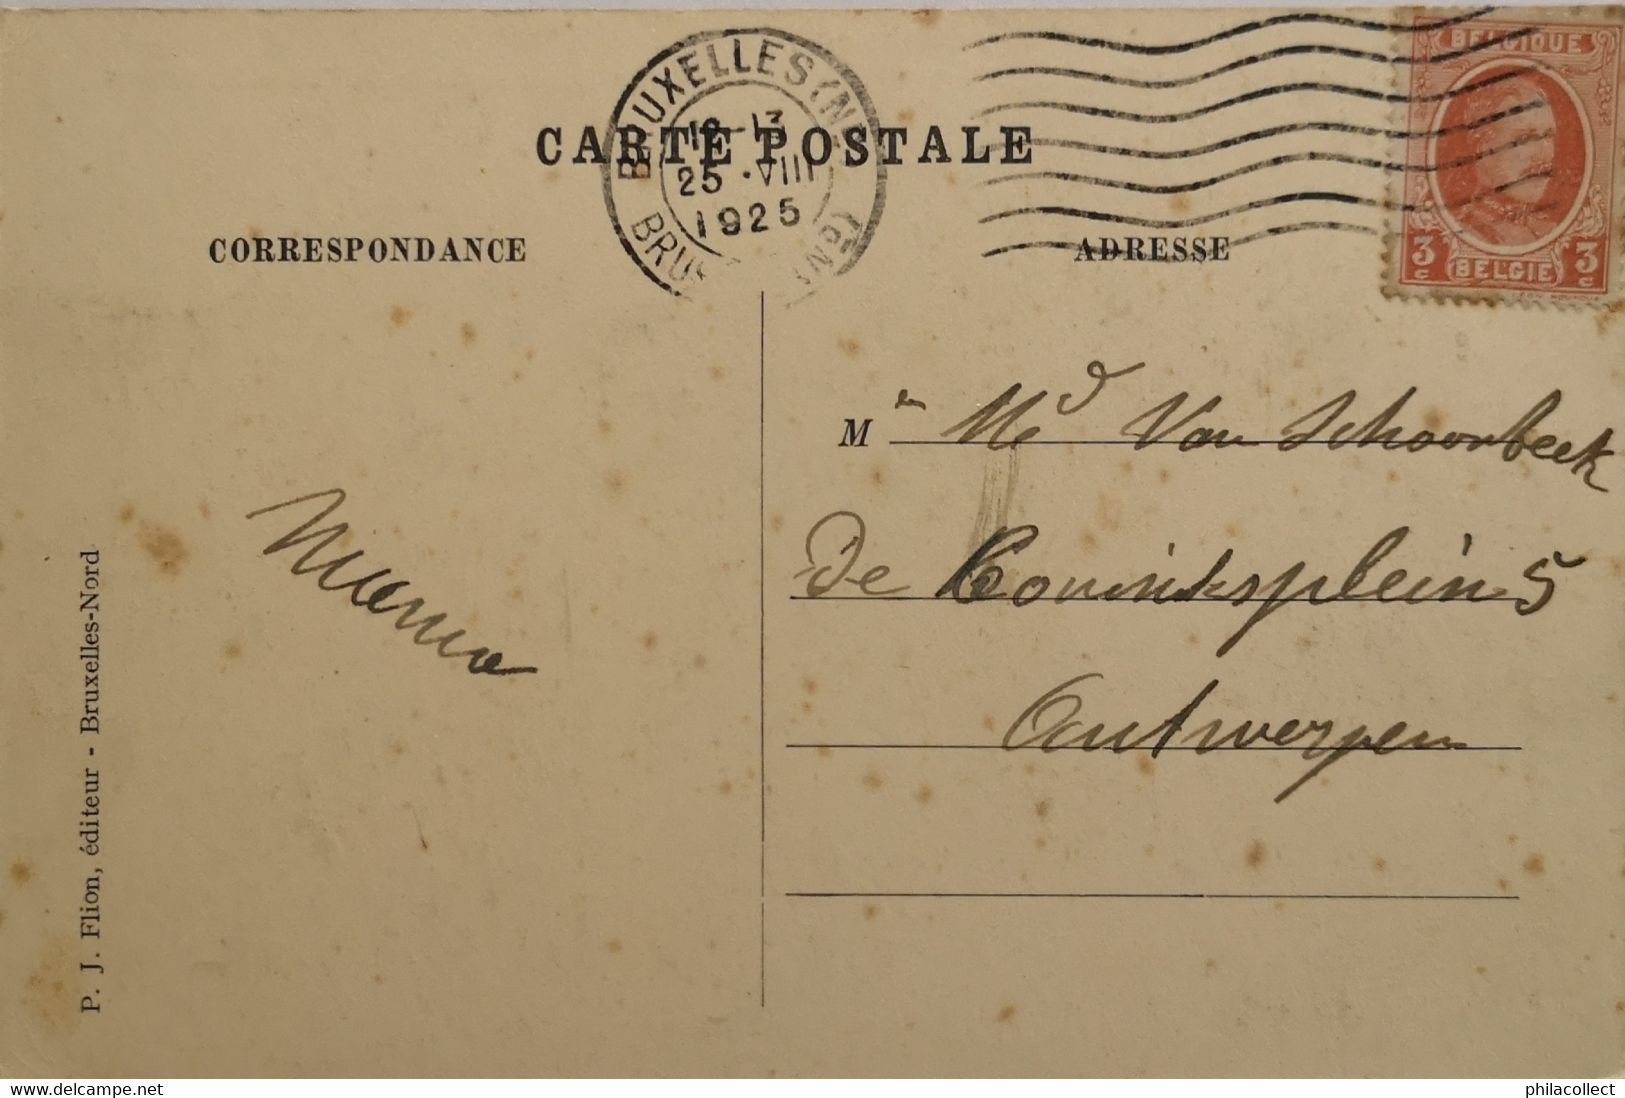 BRUXELLES (N
12-13
25 VIII
1925
BRU
CARTE POSTALE
BELGIQUE
3c BELGIË 3c
CORRESPONDANCE
ADRESSE
M Md Van Schoorbeek
De Coninksplein 5
Antwerpen
P. J. Flion, éditeur - Bruxelles-Nord
delcampe.net
philacollect